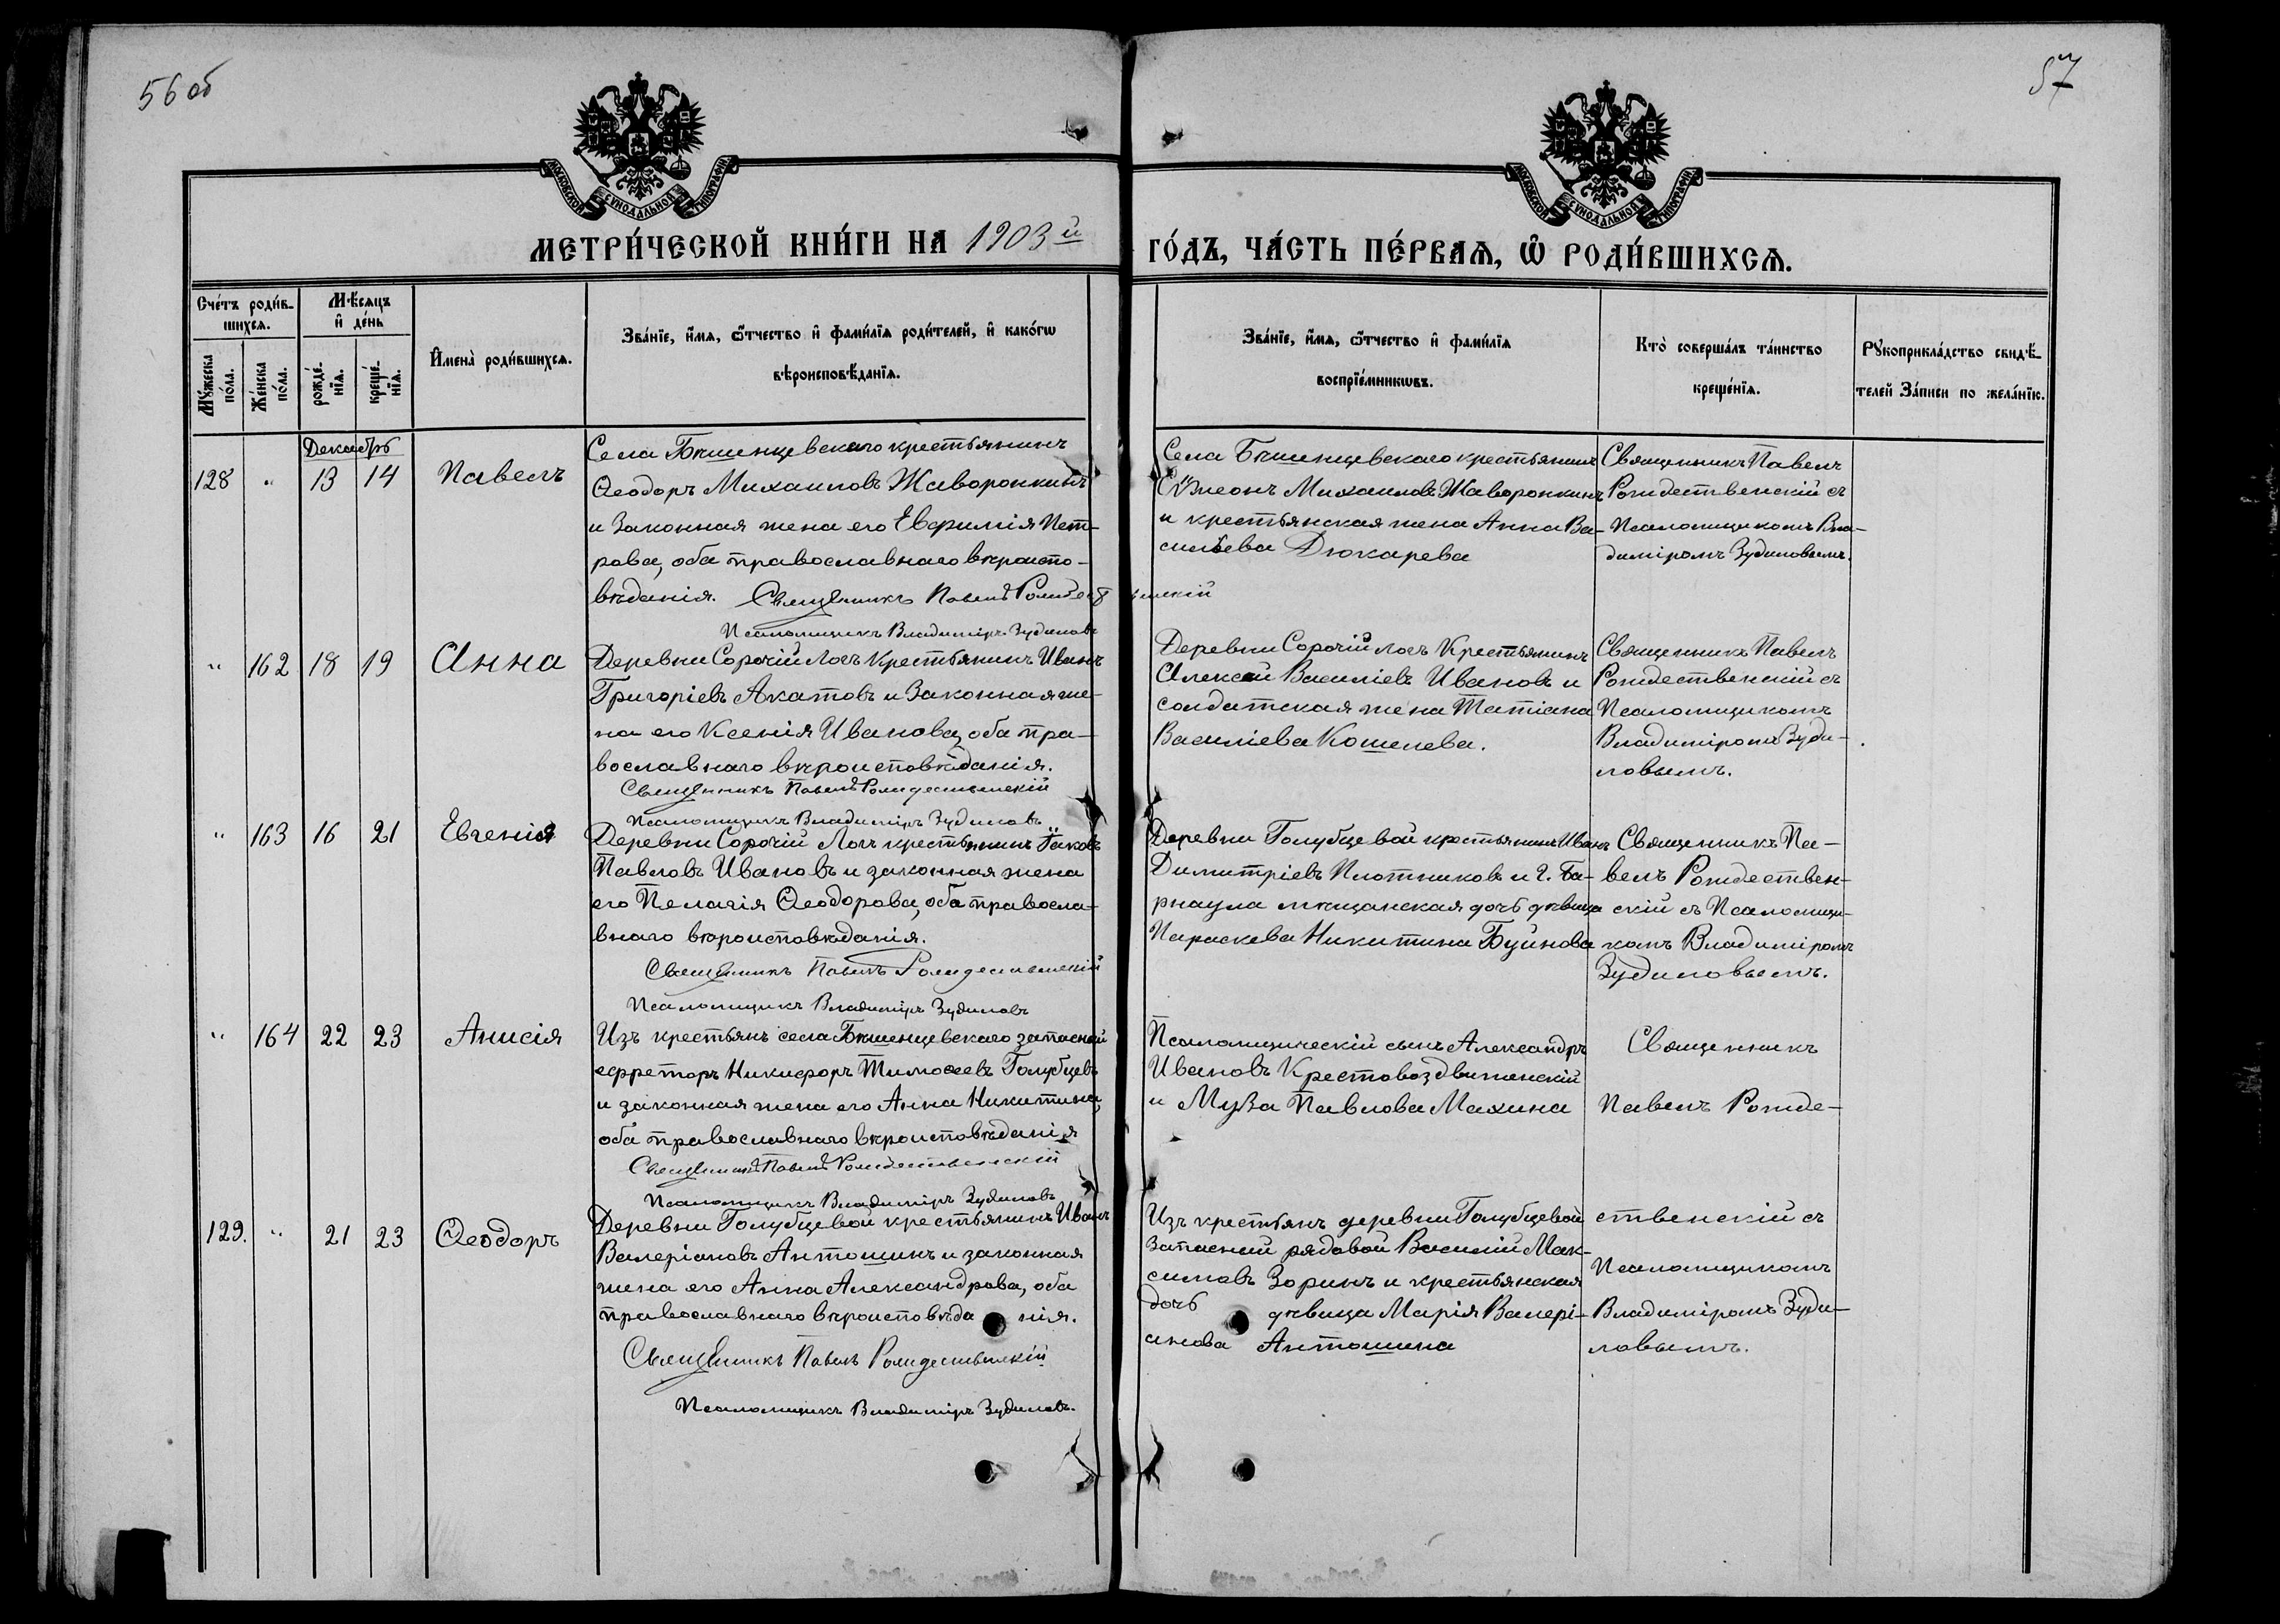 56 об
57
МОСКОВСКОЙ СѴНОДАЛЬНОЙ ТИПОГРАФІИ
МОСКОВСКОЙ СѴНОДАЛЬНОЙ ТИПОГРАФІИ
МЕТРИ́ЧЕСКОЙ КНИ́ГИ НА 1903 й
ГО́ДЪ, ЧА́СТЬ ПЕ́РВАѦ, Ѽ РОДИ́ВШИХСѦ.
Сче́тъ роди́в-
шихсѧ.
Мѣ́сяцъ
и҆ де́нь
Мꙋ́жеска
по́ла.
Же́нска
по́ла.
рожде́-
нїѧ.
креще́-
нїѧ.
И҆мена̀ роди́вшихсѧ.
Зва́нїе, и҆́мѧ, ѻ҆́тчество и҆ фами́лїѧ роди́телей, и҆ како́гѡ
вѣроисповѣ́данїѧ.
Зва́нїе, и҆́мѧ, ѻ҆́тчество и҆ фами́лїѧ
воспрїе́мникѡвъ.
Кто̀ соверша́лъ та́инство
креще́нїѧ.
Рꙋкоприкла́дство свидѣ́-
телей За́писи по жела́нїю.
Декабрь
128 " 13 14 Павелъ
Села Бѣшенцевскаго крестьянинъ
Ѳеодоръ Михаиловъ Жаворонкинъ
и законная жена его Евфимія Пет-
рова, оба православнаго вѣроиспо-
вѣданія. Священникъ Павелъ Рождественскій
Псаломщикъ Владиміръ Зудиловъ
Села Бѣшенцевскаго крестьянинъ
Сѵмеонъ Михаиловъ Жаворонкинъ
и крестьянская жена Анна Ва-
сильева Дюкарева
Священникъ Павелъ
Рождественскій съ
Псаломщикомъ Вла-
диміромъ Зудиловымъ.
" 162 18 19 Анна
Деревни Сорочій Логъ Крестьянинъ Иванъ
Григоріевъ Акатовъ и Законная же-
на его Ксенія Иванова, оба пра-
вославнаго вѣроисповѣданія.
Священникъ Павелъ Рождественскій
Псаломщикъ Владиміръ Зудиловъ
Деревни Сорочій логъ Крестьянинъ
Алексѣй Василіевъ Ивановъ и
солдатская жена Татіана
Василіева Кошелева.
Священникъ Павелъ
Рождественскій съ
Псаломщикомъ
Владиміромъ Зуди-
ловымъ.
" 163 16 21 Евгенія
Деревни Сорочій Логъ крестьянинъ Іаковъ
Павловъ Ивановъ и законная жена
его Пелагія Ѳеодорова, оба правосла-
внаго вѣроисповѣданія.
Священникъ Павелъ Рождественскій
Псаломщикъ Владиміръ Зудиловъ
Деревни Голубцевой крестьянинъ Иванъ
Димитріевъ Плотниковъ и г. Ба-
рнаула мѣщанская дочь дѣвица
Параскева Никитина Буйнова
Священникъ Па-
велъ Рождествен-
скій съ Псаломщи-
комъ Владиміромъ
Зудиловымъ.
" 164 22 23 Анисія
Изъ крестьянъ села Бѣшенцевскаго запасной
ефрейторъ Никифоръ Тимоѳеевъ Голубцевъ
и законная жена его Анна Никитина,
оба православнаго вѣроисповѣданія
Священникъ Павелъ Рождественскій
Псаломщикъ Владиміръ Зудиловъ
Псаломщическій сынъ Александръ
Ивановъ Крестовоздвиженскій
и Муза Павлова Махина
Священникъ
Павелъ Рожде-
129. " 21 23 Ѳеодоръ
Деревни Голубцевой крестьянинъ Иванъ
Валеріановъ Антошинъ и законная
жена его Анна Александрова, оба
православнаго вѣроисповѣданія.
Священникъ Павелъ Рождественскій
Псаломщикъ Владиміръ Зудиловъ.
Изъ крестьянъ деревни Голубцевой
запасный рядовой Василій Мак-
симовъ Зоринъ и крестьянская
дочь дѣвица Марія Валері-
анова Антошина
ственскій съ
Псаломщикомъ
Владиміромъ Зуди-
ловымъ.